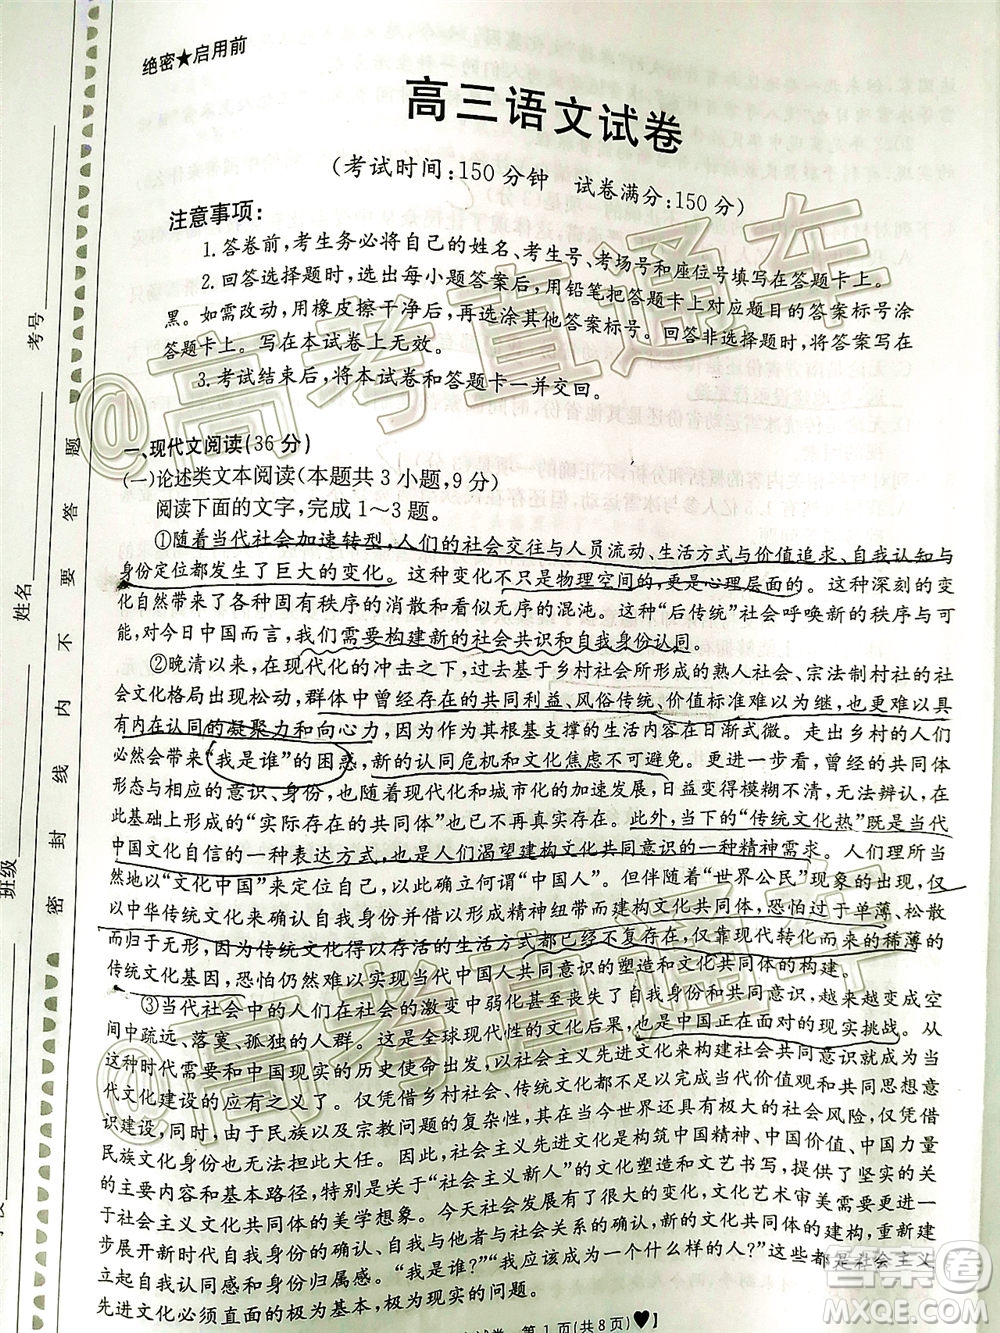 绝密★启用前
高三语文试卷
(考试时间:150分钟 试卷满分:150分)
注意事项:
1.答卷前,考生务必将自己的姓名、考生号、考场号和座位号填写在答题卡上。
2.回答选择题时,选出每小题答案后,用铅笔把答题卡上对应题目的答案标号涂
黑。如需改动,用橡皮擦干净后,再选涂其他答案标号。回答非选择题时,将答案写在
答题卡上。写在本试卷上无效。
3.考试结束后,将本试卷和答题卡一并交回。
一、现代文阅读(36分)
(一)论述类文本阅读(本题共3小题,9分)
阅读下面的文字,完成1~3题。
①随着当代社会加速转型,人们的社会交往与人员流动、生活方式与价值追求、自我认知与
身份定位都发生了巨大的变化。这种变化不只是物理空间的,更是心理层面的。这种深刻的变
化自然带来了各种固有秩序的消散和看似无序的混沌。这种“后传统”社会呼唤新的秩序与可
能,对今日中国而言,我们需要构建新的社会共识和自我身份认同。
②晚清以来,在现代化的冲击之下,过去基于乡村社会所形成的熟人社会、宗法制村社的社
会文化格局出现松动,群体中曾经存在的共同利益、风俗传统、价值标准难以为继,也更难以具
有内在认同的凝聚力和向心力,作为其根基支撑的生活内容日渐式微。走出乡村的人们
必然会带来“我是谁”的困惑,新的认同危机和文化焦虑不可避免。更进一步看,曾经的共同体
所赋予的意识、身份,随着现代化和城市化的加速发展,日益变得模糊不清,无法辨认,在
此基础上形成的“实际存在的共同体”也不复存在。此外,当下的“传统文化热”既是当代
中国文化自信的一种表达方式,也是人们渴望建构文化共同意识的一种精神需求。人们诚
然可以“文化中国”来定位自己,以此确立何谓“中国人”。但随着“世界公民”现象的出现,仅
以中华传统文化来确认自我身份并借以形成精神纽带而建构文化共同体,恐怕过于单薄、松散
而归于无形,因为传统文化得以存活的生活方式都已经不复存在,仅靠现代转化而来的稀薄的
传统文化基因,恐怕仍然难以实现当代中国人共同意识的塑造和文化共同体的构建。
③当代社会中的人们在社会的激变中或多或少甚至丧失了自我身份和共同意识,越来越成为空
间中疏远、落寞、孤独的人群。这是全球现代性的文化后果,也是中国正在面对的现实挑战。从
这种意义上来看,现实和未来的历史使命将是以社会主义先进文化来构建社会共同意识,这是当
代文化建设的应有之义。仅凭借乡村社会、传统文化资源,难以实现当代价值观和共同思想意
识建设,同时,由于民族以及宗教问题的复杂性,在当今世界面临越来越大的社会风险,仅凭借
民族文化身份也无力担此大任。因此,社会主义先进文化建设是构筑中国精神、中国价值、中国力量
的内容和基本路径,特别是关于“社会主义新人”的文化塑造与文艺书写,提供了坚实的关
于社会主义文化共同体的美学想象。今天社会发展有了很大的变化,文化艺术审美需要进一
步展开新时代自我身份、自我与他者、自我与社会关系的确认,以推动共同体的建构,重新建
立起自我认同感和身份归属感。“我是谁?”“我应该成为一个什么样的人?”这些都是社会主义
先进文化必须直面的极为基本、极为紧要的问题。
试卷 第1页(共8页)♥】
考号
姓名
班级
密 封 线 内 不 要 答 题
@高考直通车
@高考直通车
答案卷
MXQE.COM